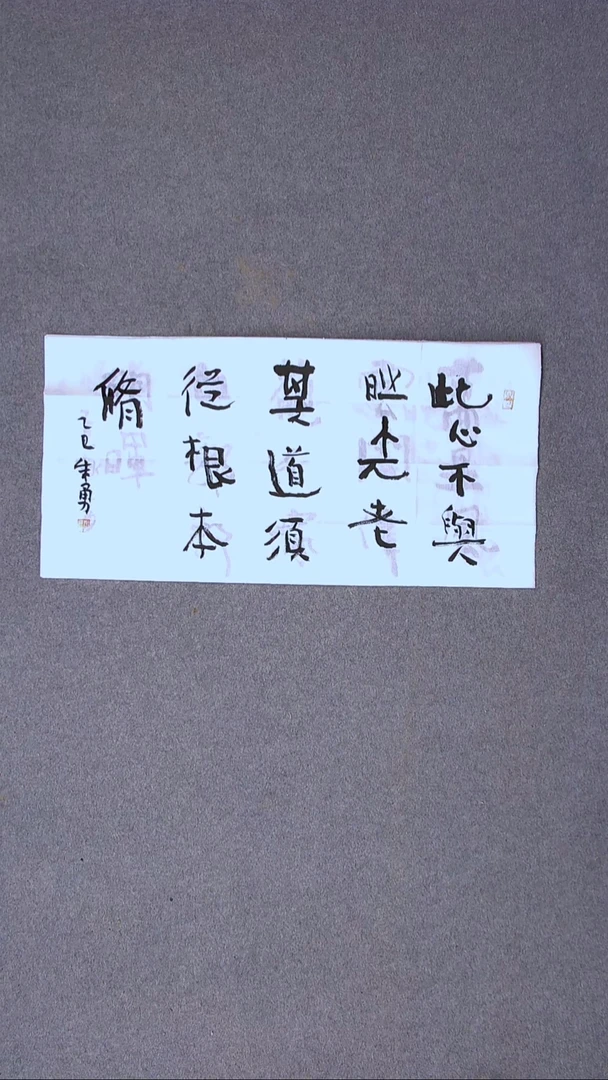 此心不與
時光老
道須
從根本
脩
乙巳 朱勇